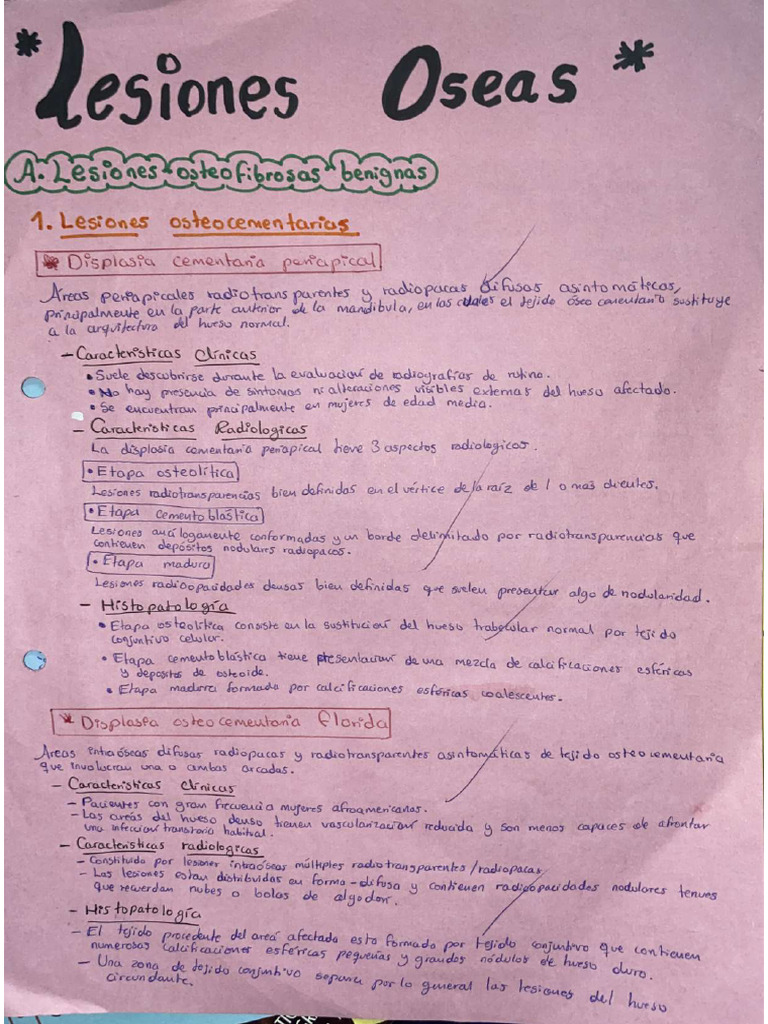 * Lesiones Oseas *
A. Lesiones osteofibrosas benignas
1. Lesiones osteocementarias
* Displasia cementaria periapical
Areas periapicales radiotransparentes y radiopacas difusas asintomáticas,
principalmente en la parte anterior de la mandibula, en las cuales el tejido óseo cementario sustituye
a la arquitectura del hueso normal.
- Caracteristicas Clinicas
• Suele descubrirse durante la evaluación de radiografías de rutina.
• No hay presencia de sintomas ni alteraciones visibles externas del hueso afectado.
• Se encuentran principalmente en mujeres de edad media.
- Caracteristicas Radiologicas
La displasia cementaria periapical tiene 3 aspectos radiologicos.
• Etapa osteolítica
Lesiones radiotransparencias bien definidas en el vértice de la raíz de 1 o más dientes.
• Etapa cementoblástica
Lesiones análogamente conformadas y un borde delimitado por radiotransparencias que
contienen depósitos nodulares radiopacos.
• Etapa madura
Lesiones radioopacidades densas bien definidas que suelen presentar algo de nodularidad.
- Histopatología
• Etapa osteolitica consiste en la sustitución del hueso trabecular normal por tejido
conjuntivo celular.
• Etapa cementoblástica tiene presentación de una mezcla de calcificaciones esféricas
y depositos de osteoide.
• Etapa madura formada por calcificaciones esféricas coalescentes.
* Displasia osteocementaria florida
Areas intraóseas difusas radiopacas y radiotransparentes asintomáticas de tejido osteocementaria
que involucran una o ambas arcadas.
- Caracteristicas clinicas
- Pacientes con gran frecuencia mujeres afroamericanas.
- Las areás del hueso denso tienen vascularización reducida y son menos capaces de afrontar
una infeccion transitoria habitual.
- Caracteristicas radiologicas
- Constituido por lesiones intraóseas múltiples radiotransparentes/radiopacas
- Las lesiones estan distribuidas en forma difusa y contienen radioopacidades nodulares tenues
que recuerdan nubes o bolas de algodon.
- Histopatología
- El tejido procedente del areá afectada esta formado por tejido conjuntivo que contienen
numerosas calcificaciones esféricas pequeñas y grandes nódulos de hueso duro.
- Una zona de tejido conjuntivo separa por lo general las lesiones del hueso
circundante.